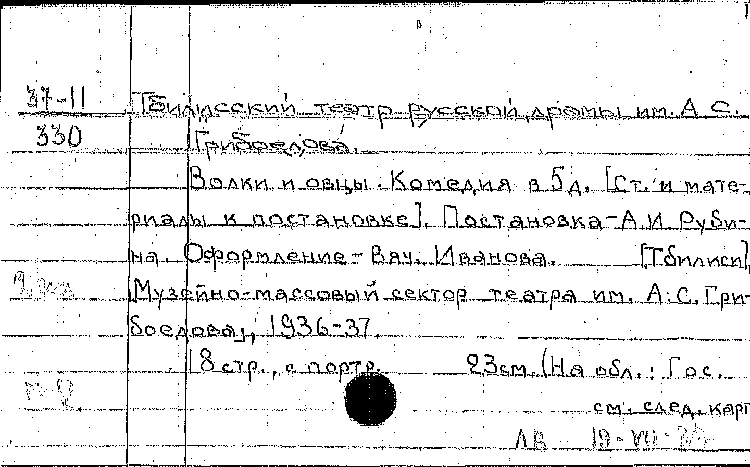 37-11 Тбилисский театр русской драмы им. А.С.
330 Грибоедова.
Волки и овцы. Комедия в 5 д. [Ст. и мате-
риалы к постановке]. Постановка - А.И. Руби-
на. Оформление - Вяч. Иванова. [Тбилиси],
[Музейно-массовый сектор театра им. А.С. Гри-
боедова], 1936-37.
18 стр., с портр. 23 см. (На обл.: Гос.
см. след. карт
ЛВ 19-VII-